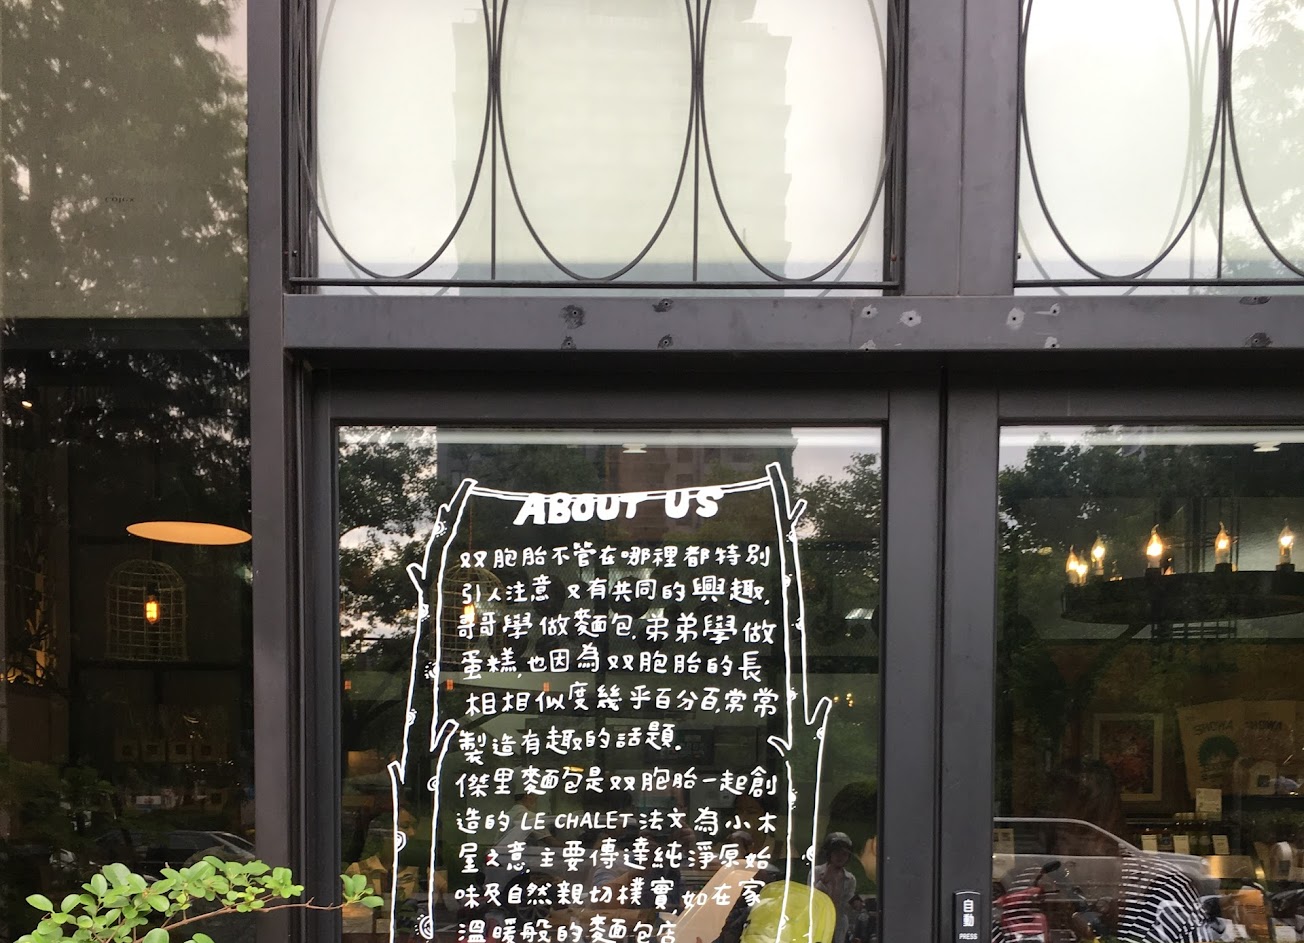 ABOUT US
双胞胎不管在哪裡都特別
引人注意又有共同的興趣.
哥哥學做麵包.弟弟學做
蛋糕,也因為双胞胎的長
相相似度幾乎百分百,常常
製造有趣的話題.
傑里麵包是双胞胎一起創
造的 LE CHALET 法文為小木
屋之意,主要傳達純淨原始
味及自然親切樸實,如在家
溫暖般的麵包店
自動
PRESS